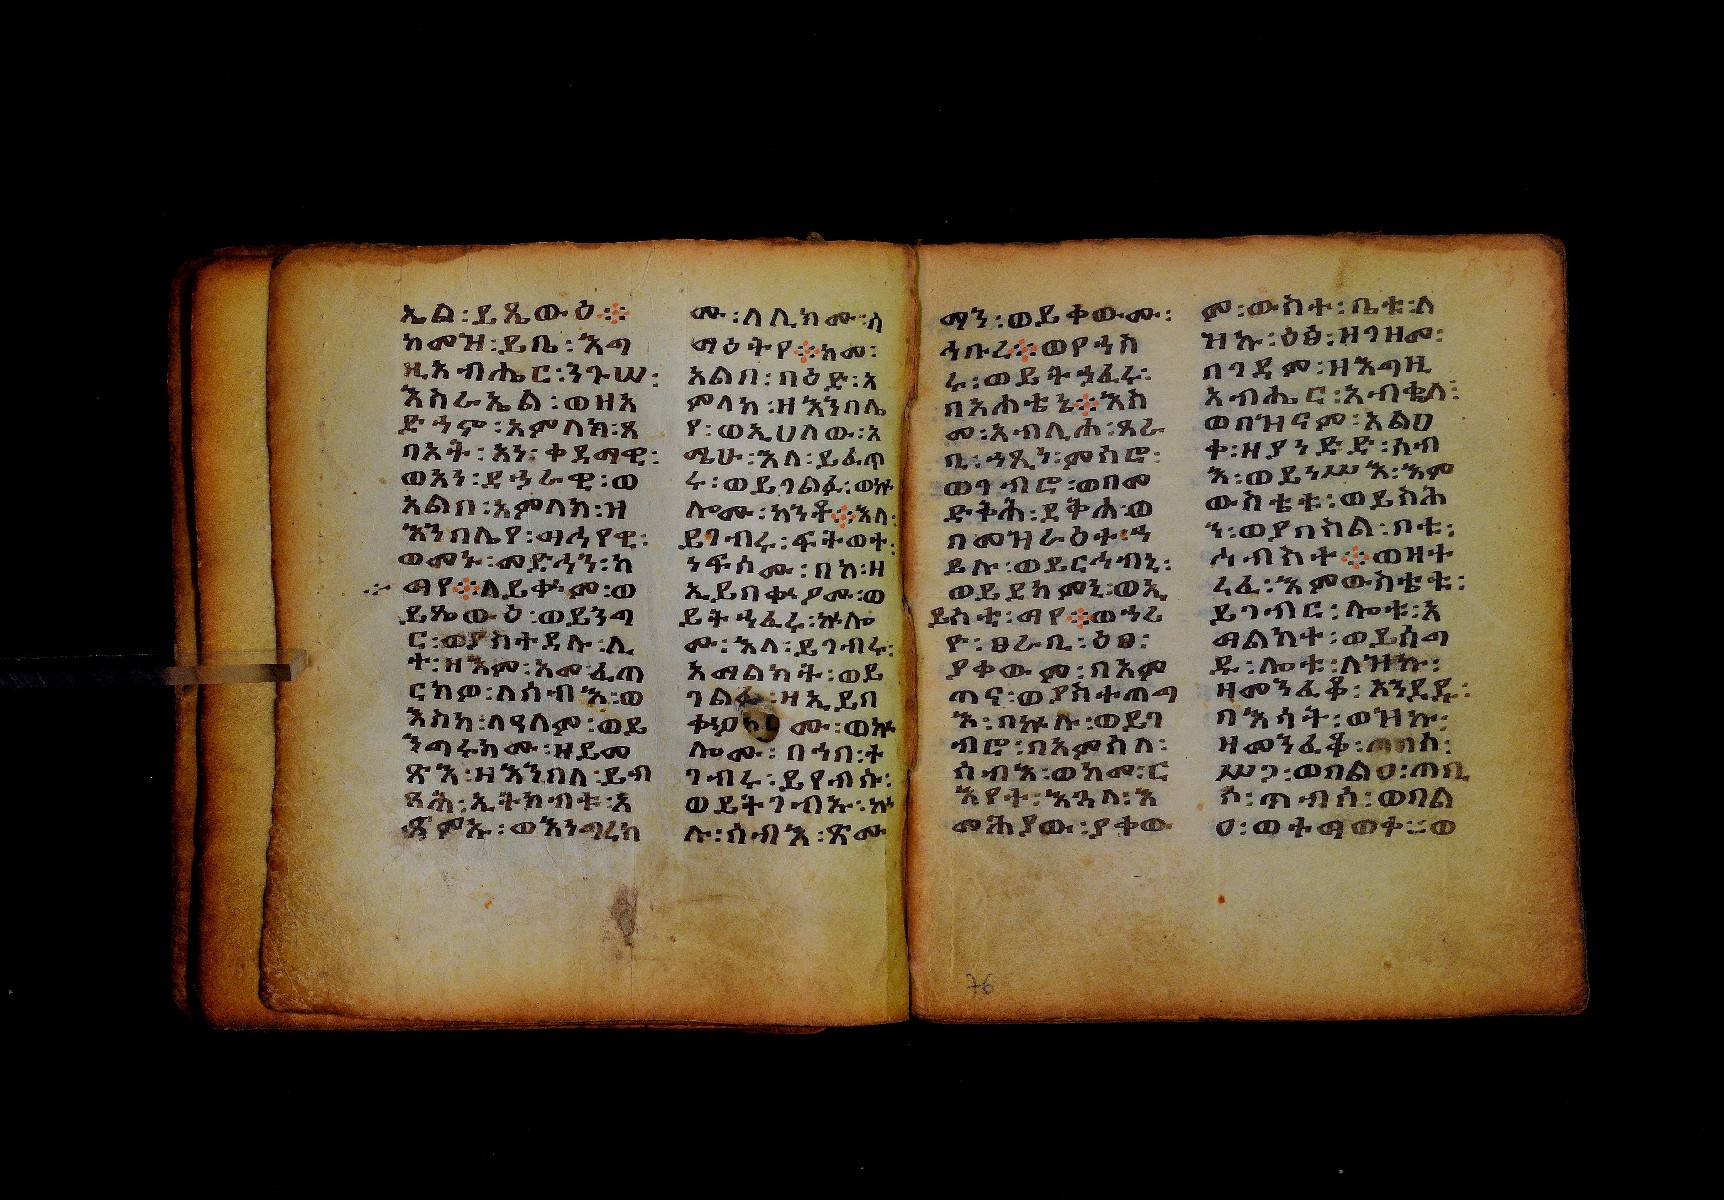 ኤል፡ይጼውዕ፡፨
ከመዝ፡ይቤ፡እግ
ዚአብሔር፡ንጉሠ፡
እስራኤል፡ወዘአ
ድኀም፡አምላክ፡ጸ
በኦት፡አነ፡ቀዳማዊ፡
ወአነ፡ደኃራዊ፡ወ
አልቦ፡አምላክ፡ዝ
እንበሌየ፡ማሕየዊ፡
ወመኑ፡መድኀን፡ከ
ማየ፨ለይቁም፡ወ
ይጼውዕ፡ወይንግ
ር፡ወያስተዳሉ፡ሊ
ተ፡ዘእም፡አመ፡ፈጠ
ርክዎ፡ለሰብእ፡ወ
እስከ፡ለዓለም፡ወይ
ንግሩክሙ፡ዘይመ
ጽእ፡ዘእንበለ፡ይብ
ጻሕ፡ኢትክብቱ፡እ
ጼምኡ፡ወእንግረክ
ሙ፡ለሊክሙ፡ሰ
ማዕትየ፨ከመ፡
አልቦ፡በዕድ፡አ
ምላክ፡ዘእንበሌ
የ፡ወኢሀለው፡አ
ሜሁ፡እለ፡ይፈጥ
ሩ፡ወይገልፉ፡ወኵ
ሎሙ፡ከንቶ፨እለ፡
ይገብሩ፡ፍትወተ፡
ነፍሶሙ፡በከ፡ዘ
ኢይበቍዖሙ፡ወ
ይትኀፈሩ፡ኵሎ
ሙ፡እለ፡ይገብሩ፡
አማልክት፡ወይ
ገልፉ፡ዘኢይበ
ቍዖሙ፡ወኵ
ሎሙ፡በኀበ፡ተ
ገብሩ፡ይየብሱ፡
ወይትገብኡ፡ኵ
ሉ፡ሰብእ፡ጽሙ
ማን፡ወይቀውሙ፡
ኅቡረ፨ወየኀስ
ሩ፡ወይትኃፈሩ፡
በአሐቲኔ፨እስ
መ፡አብሊሐ፡ጸራ
ቢ፡ኀጺነ፡ምስሮ፡
ወገብሮ፡ወበመ
ድቅሕ፡ደቅሐ፡ወ
በመዝራዕተ፡ኀ
ይሉ፡ወይርኅብኒ፡
ወይደክምኒ፡ወኢ
ይስቲ፡ማየ፨ወኀሪ
ዮ፡ፀራቢ፡ዕፀ፡
ያቀውም፡በአም
ጠና፡ወያስተጠግ
እ፡በኵሉ፡ወይገ
ብሮ፡በአምሳለ፡
ሰብእ፡ወከመ፡ር
እየት፡እጓለ፡እ
መሕያው፡ያቀው
ም፡ውስተ፡ቤቱ፡ለ
ዝኩ፡ዕፅ፡ዘገዘመ፡
በገዳም፡ዘእግዚ
አብሔር፡አብቈለ፡
ወበዝናም፡አልሀ
ቀ፡ዘያነድድ፡ሰብ
እ፡ወይነሥእ፡እም
ውስቴቱ፡ወይስሕ
ን፡ወያበስል፡ቦቱ፡
ኅብስተ፨ወዝተ
ረፈ፡እምውስቴቱ፡
ይገብር፡ሎቱ፡አ
ማልክተ፡ወይሰግ
ዱ፡ሎቱ፡ለዝኩ፡
ዘመንፈቆ፡አንደዱ፡
በእሳት፡ወዝኩ፡
ዘመንፈቆ፡ጠበሰ፡
ሥጋ፡ወበልዐ፡ጠቢ
ሶ፡ጥብሰ፡ወበል
ዐ፡ወተማወቀ፡፡ወ
76